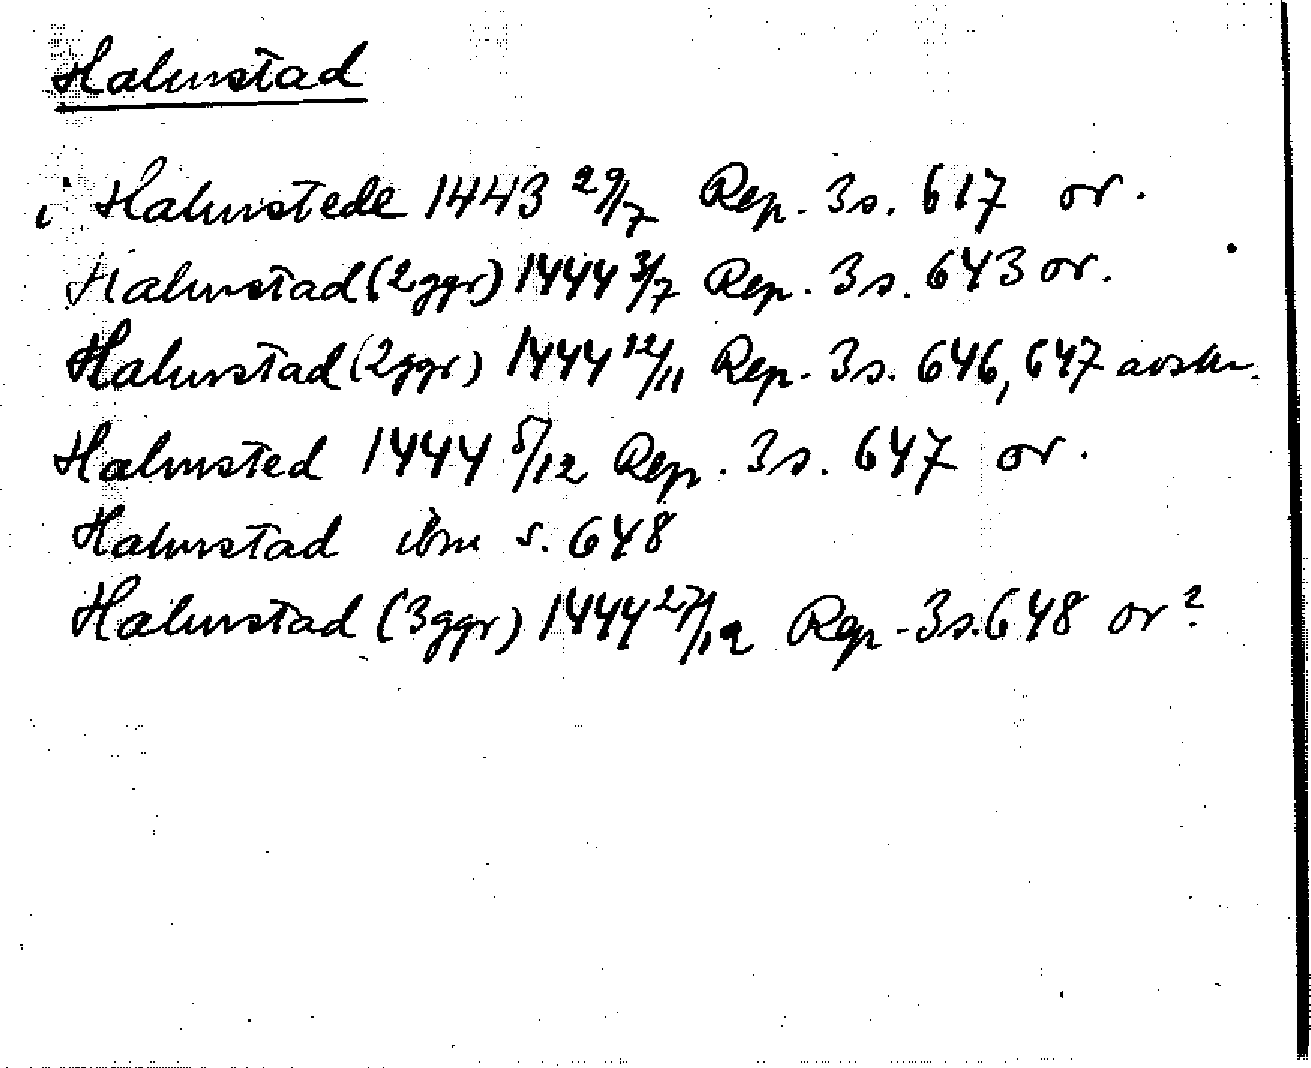 Halmstad
i Halmstede 1443 29/7 Rep. 3 s. 617 or.
Halmstad (2 ggr) 1444 3/7 Rep. 3 s. 643 or.
Halmstad (2 ggr) 1444 12/11 Rep. 3 s. 646, 647 avskr.
Halmsted 1444 5/12 Rep. 3 s. 647 or.
Halmstad ibm s. 648
Halmstad (3 ggr) 1444 27/12 Rep. 3 s. 648 or?